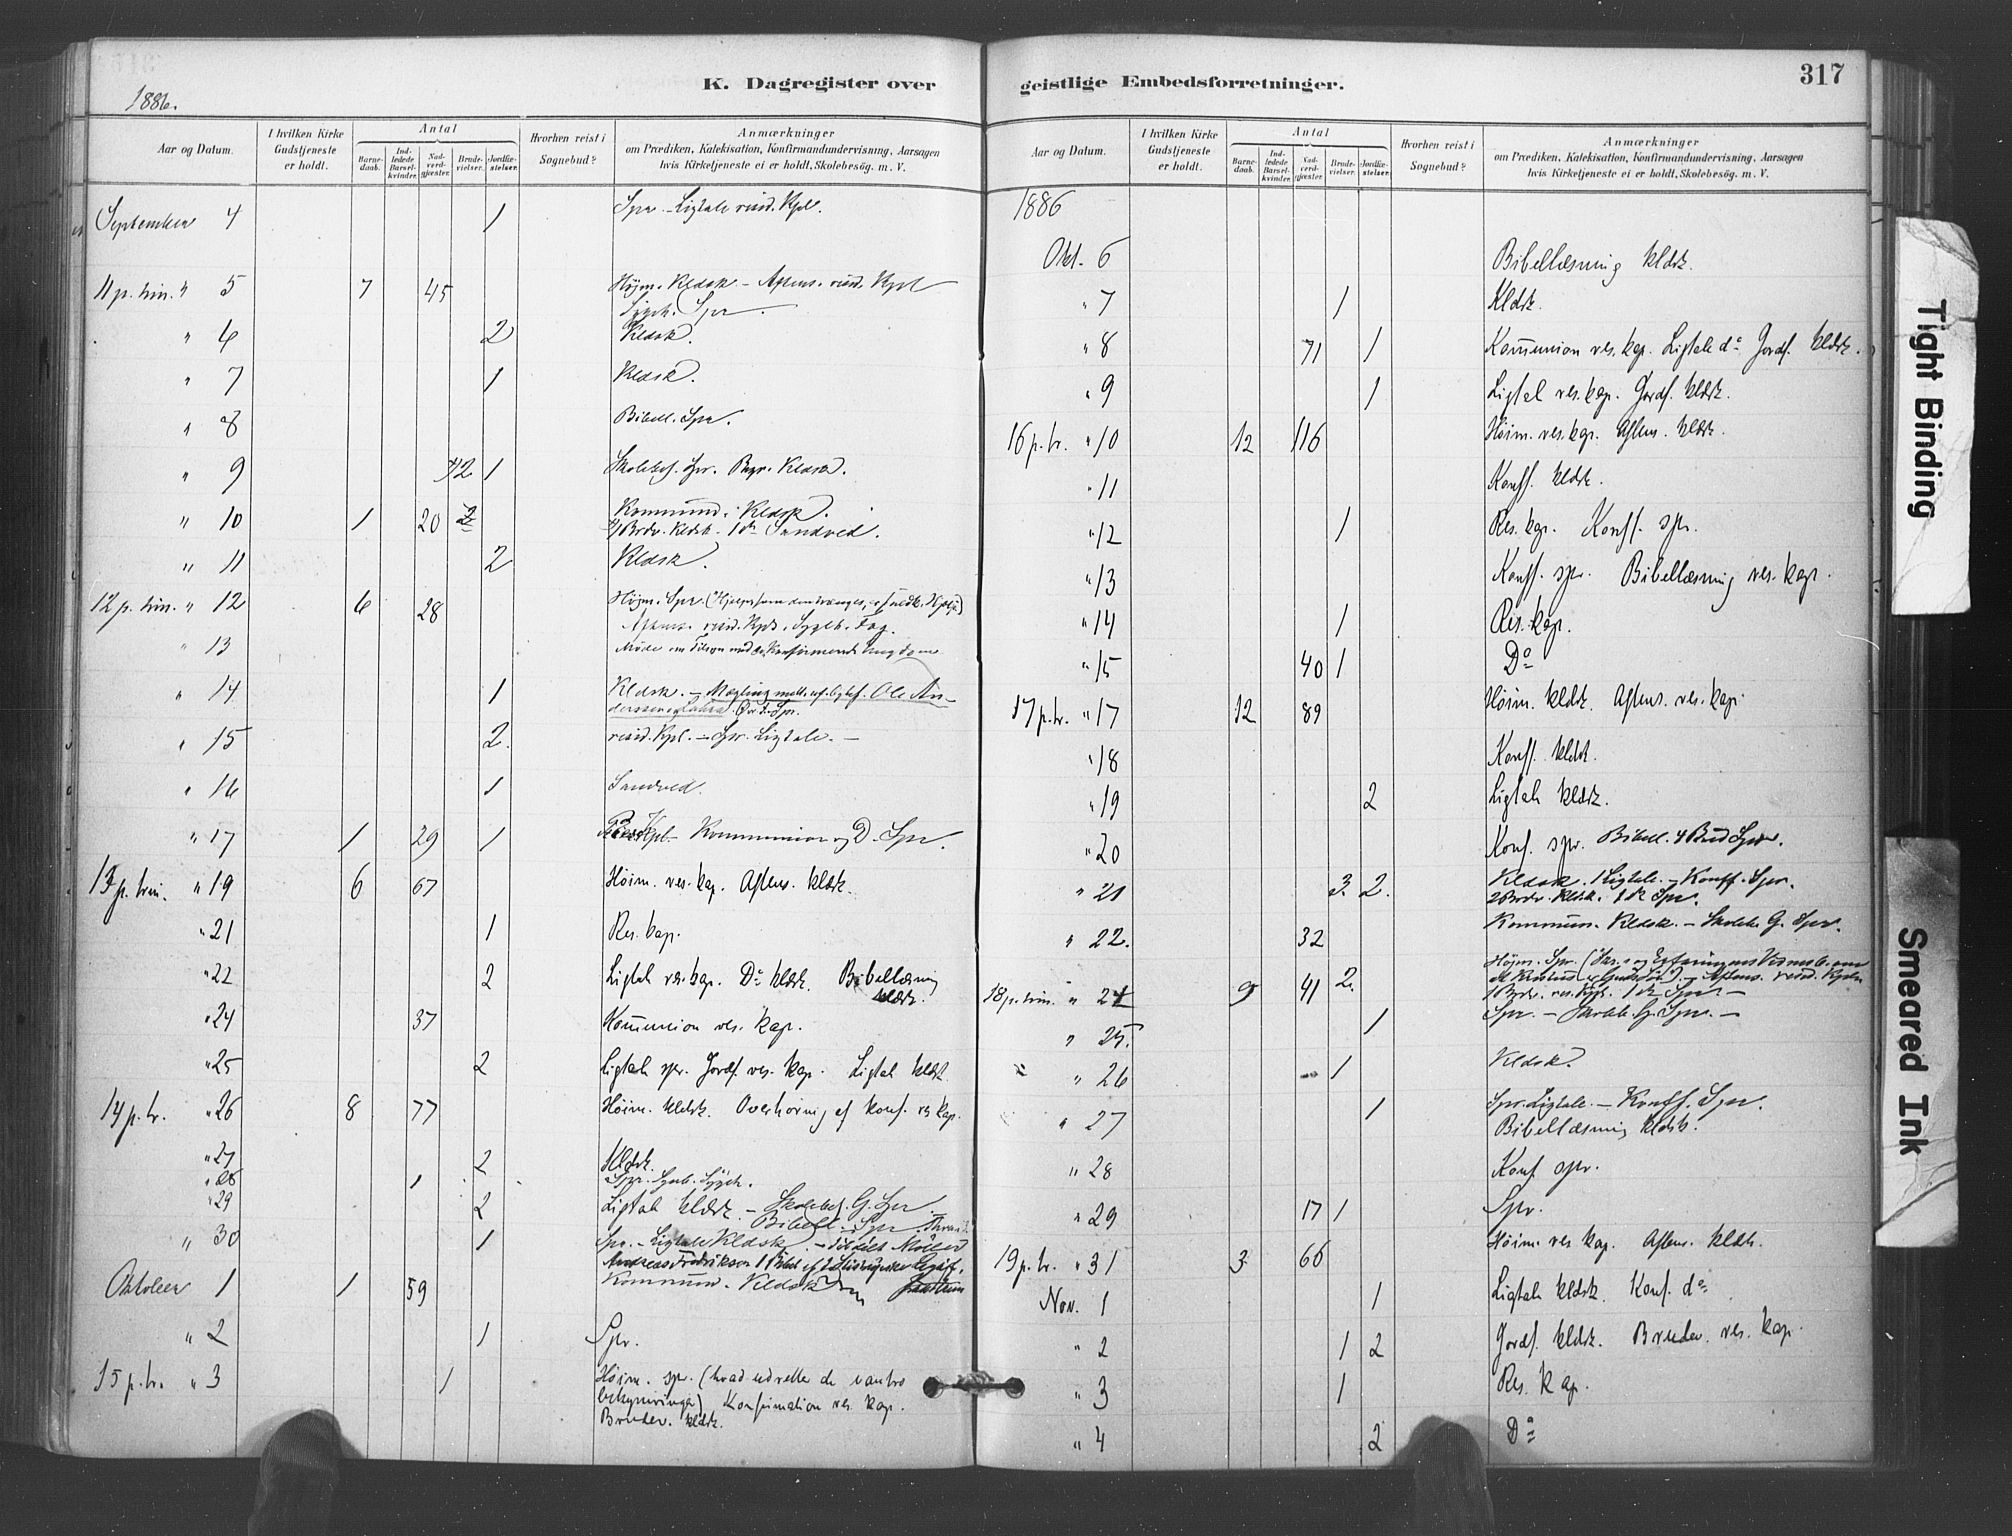 317
K. Dagregister over geistlige Embedsforretninger.
1886.
Aar og Datum.
I hvilken Kirke Gudstjeneste er holdt.
Antal
Barne-daab.
Ind-ledede Barsel-kvinder.
Nad-verd-gjester.
Brude-vielser.
Jordfæ-stelser.
Hvorhen reist i Sognebud?
Anmærkninger
om Prædiken, Katekisation, Konfirmandundervisning, Aarsagen
hvis Kirketjeneste ei er holdt, Skolebesög. m. V.
September 4 1 Spr. - Ligtale resid. Kpl.
11 p. trin. " 5 7 45 Højm. Kldsk - Aftens. resid. Kpl
Spr.
" 6 2 Kldsk.
" 7 1 Kldsk.
" 8 Bibell. Spr.
" 9 1 Skolebes. Spr. Kldsk.
" 10 1 20 2 Kommun. Kldsk.
Brdv. Kldsk. 1 do Sandved.
" 11 2 Kldsk.
12 p. trin. " 12 6 28 Højm. Spr.
Aftens. resid. Kpl.
" 13 Møde
" 14 1 Kldsk. - Mægling Ole An-
Spr.
" 15 2. resid. Kpl. - Spr. Ligtale. -
" 16 1 Sandved.
" 17 1 29 1 Kommunion og D. Spr.
13 p. trin. " 19 6 67 Høim. res. kap. Aftens. kldsk.
" 21 1 Res. kap.
" 22 2 Ligtal res. kap. Do kldsk. Bibellæsning
kldsk.
" 24 37 Kom̄union res. kap.
" 25 2 Ligtale spr. Jordf. res. kap. Ligtal kldsk.
14 p. tr. " 26 8 77 Høim. kldsk. Overhøring af konf. res kap.
" 27 2 Kldsk.
" 28 1 Spr.
" 29 2 Ligtale kldsk. - Skolebes. G. Spr.
Bibell. Spr.
" 30 1 Spr. - Ligtale Kldsk. Møller
Andreas Fredrikson
Oktober 1 1 59 Kommun. Kldsk
" 2 1 Spr.
15 p. tr. " 3 1 Høim. spr. (hvad udretter de vantro
bekymringer) Konfirmation res. kap.
Brudev. kldsk.
Aar og Datum.
I hvilken Kirke Gudstjeneste er holdt.
Antal
Barne-daab.
Ind-ledede Barsel-kvinder.
Nad-verd-gjester.
Brude-vielser.
Jordfæ-stelser.
Hvorhen reist i Sognebud?
Anmærkninger
om Prædiken, Katekisation, Konfirmandundervisning, Aarsagen
hvis Kirketjeneste ei er holdt, Skolebesög. m. V.
1886
Okt. 6 Bibellæsning kldsk.
" 7 1 Kldsk.
" 8 71 1 Kom̄union res. kap. Ligtale do Jordf. kldsk.
" 9 1 Ligtal res. kap. Jordf. kldsk.
16 p. tr. " 10 12 116 Høim. res. kap. Aftens. kldsk.
" 11 Konff. kldsk.
" 12 1 Res. kap. Konff. spr.
" 13 Konff. spr. Bibellæsning res. kap.
" 14 1 Res. kap.
" 15 40 1 Do
17 p. tr. " 17 12 89 Høim. kldsk. Aftens. res. kap.
" 18 Konff. kldsk.
" 19 2 Ligtale kldsk.
" 20 Konf. spr. Bibell.
" 21 3. 2. Kldsk. 1 Ligtale. - Konff. Spr.
2 Brdv. Kldsk. 1 do Spr.
" 22. 32 Kommun. Kldsk. - Skoleb. G. Spr.
18 p. trin. " 24 9 41 2. Højm. Spr.
Aftens. resid. Kpln
1 Brdv. res. Kpl. 1 do Spr. -
" 25. 1 Spr. - Skoleb. G. Spr. -
" 26 1 Kldsk.
" 27 1 Spr. Ligtale. - Konff. Spr.
Bibellæsning kldsk.
" 28 Konf spr.
" 29 17 1 Spr.
19 p. tr. " 31 3 66 Høim. res kap. Aftens. kldsk.
Nov. 1 1 Ligtale kldsk. Konf. do
" 2 1 2 Jordf. kldsk. Brudev. res. kap.
" 3 1 Res. kap.
" 4 2 Do
Tight Binding
Smeared Ink